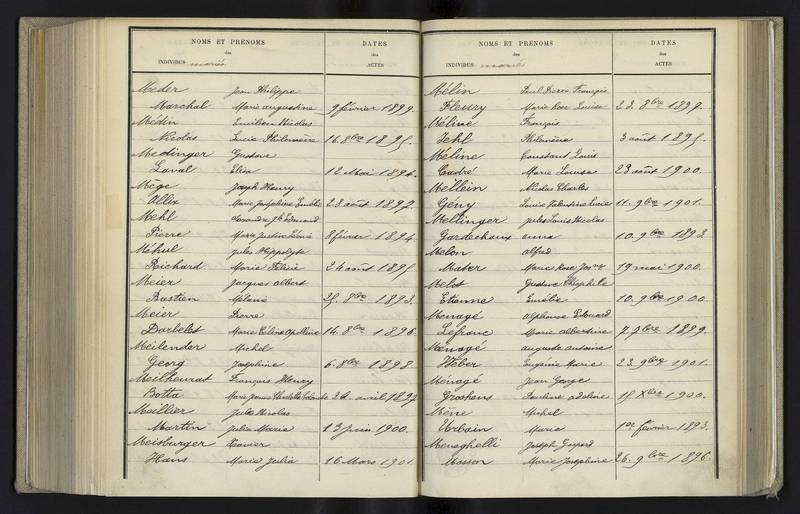 NOMS ET PRÉNOMS
des
INDIVIDUS mariés
DATES
des
ACTES
Meder Jean Philippe
Marchal Marie Augustine 9 février 1899.
Médin Emilien Nicolas
Nicolas Lucie Philomène 16 8bre 1895.
Medinger Gustave
Laval 12 Mai 1894.
Mège Joseph Henry
Allix Marie Joséphine 28 août 1897.
Mehl
Pierre Marie Justine 8 février 1894.
Méhul Jules Hippolyte
Richard Marie Félicie 24 août 1895.
Meier Jacques Albert
Bastien Mélanie 25. 8bre 1893.
Meier Pierre
Darbelet Marie Hélène Apolline 14. 8bre 1896.
Meilender Michel
Georg Joséphine 6. 8bre 1898.
François Henry
Botta Marie Jeanne avril 1899
Meillier Jules Nicolas
Martin Julia Marie 13 juin 1900.
Meisburger Xavier
Hans Marie Julia 16 Mars 1901
NOMS ET PRÉNOMS
des
INDIVIDUS mariés
DATES
des
ACTES
Mélin Paul Pierre François
Fleury Marie Rose Louise 23. 8bre 1899.
François
Jehl Philomène 3 août 1895.
Méline Constant Louis
Marie Louise 28 août 1900.
Mellein Nicolas Charles
Gény Louise Valentine Lucie 11. 9bre 1901.
Mellinger Jules Louis Nicolas
Gardechaux Anna 10. 9bre 1893
Melon Alfred
Mater Marie Rose 19 mai 1900.
Melot Gustave Théophile
Etienne Emélie 10. 9bre 1900.
Menagé Alphonse Edouard
Lefranc Marie Albertine 7. 7bre 1899.
Ménagé Auguste Antoine
Weber Eugénie Marie 23. 9bre 1901.
Menagé Jean George
Groshens Pauline Adeline 15 Xbre 1900.
Mène Michel
Urbain Marie 1er février 1893.
Meneghelli Joseph Gaspard
Masson Marie Joséphine 26. 9bre 1896.